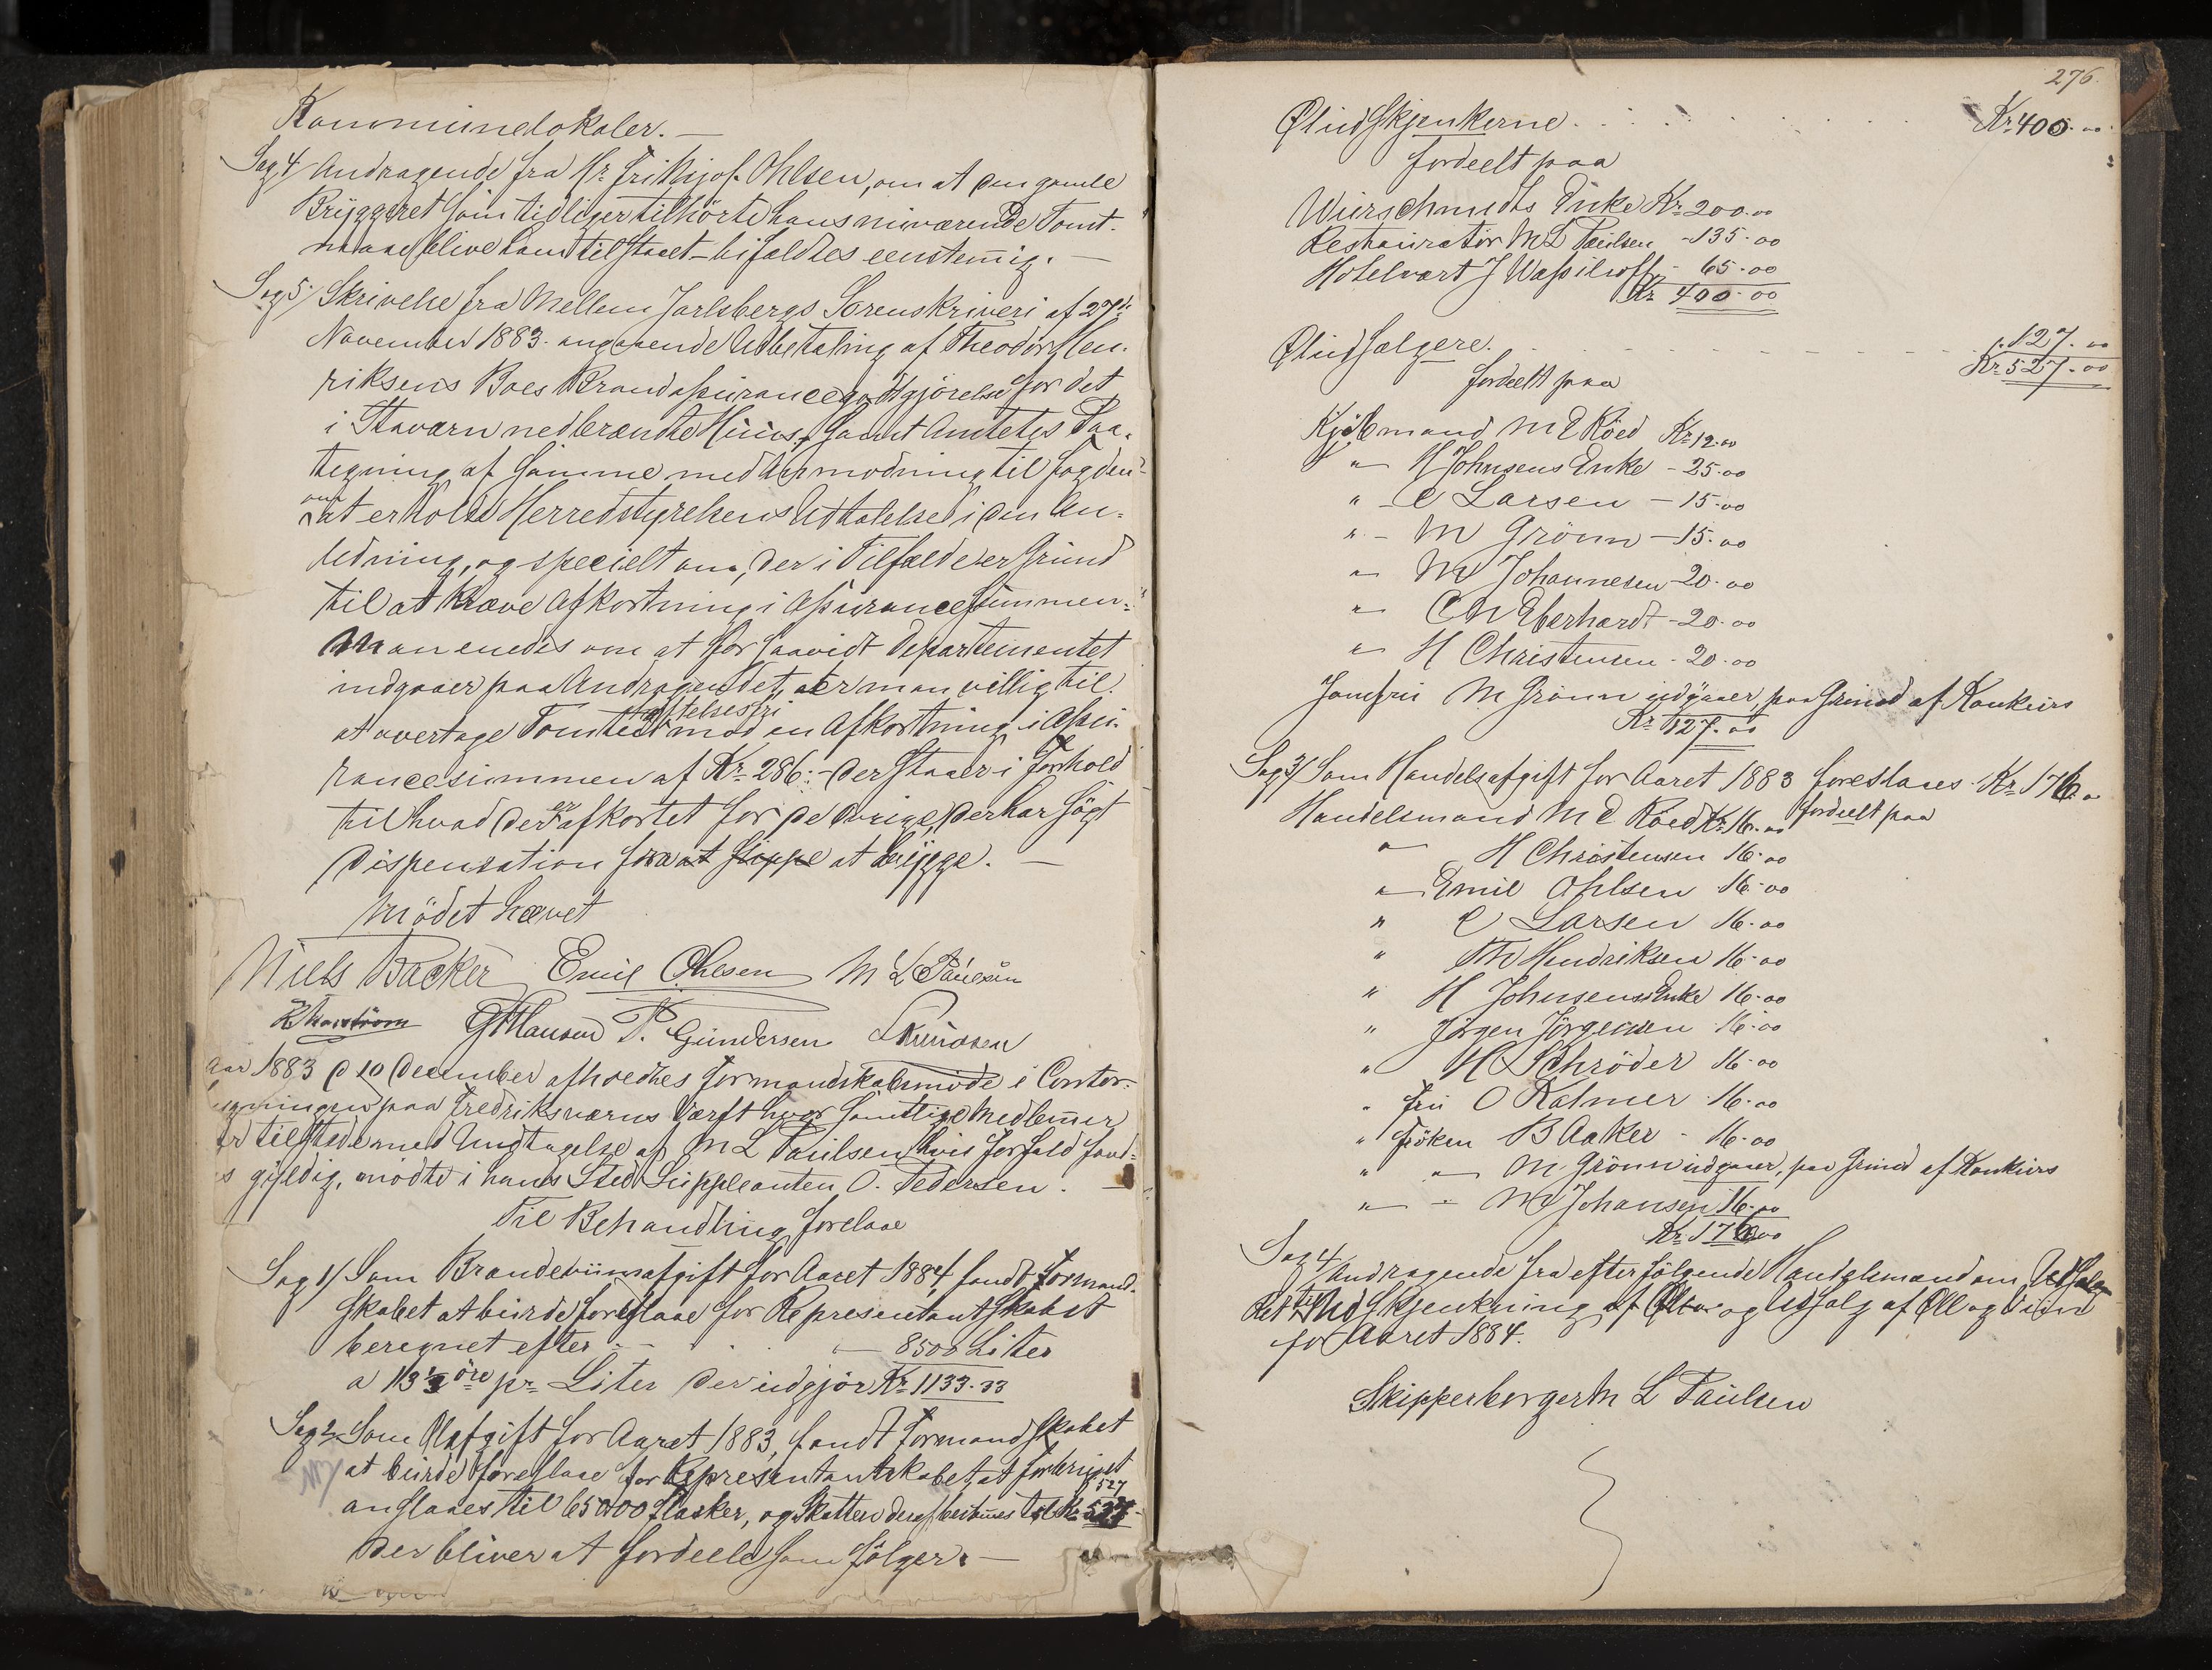 Kommunelokaler. —
Sag 4/ Andragende fra Hr. Frithjof Ohlsen, om at den gamle
Bryggeret som tidligere tilhörte hans nuværende Tomt.
maae blive ham tilstaaet – bifaldtes eenstem̄ig. —
Sag 5/ Skrivelse fra Mellem Jarlsbergs Sorenskriveri af 27de
November 1883 angaaende Udbetaling af Theodor Hen-
riksens Boes Brandassurancegodtgjörelse for det
i Staværn nedbrændte Huus, samt Amtets Paa-
tegning af samme med Anmodning til Fogden
om at erholde Herredstyrelsens Udtalelse i den An-
ledning, og specielt om, der i Tilfælde er Grund
til at kræve Afkortning i Assurancesummen:
Man enedes om at forsaavidt Departementet
indgaaer paa Andragendet, er man villig til
at overtage Tomten mod en Afkortning i Assu-
rancesummen af Kr. 286.- der staaer i Forhold
til hvad der er afkortet for de övrige, der har sögt
Dispensation fra at slippe at bygge. —
Mödet hævet
Niels Backer Emil Ohlsen M L Paulsen
G Hansen P. Gundersen L Knudsen
Aar 1883 d 10 December afholdtes Formandskabsmöde i Contor-
bygningen paa Fredriksværns Værft hvor samtlige Medlem̄er
er tilstede med Undtagelse af M L Paulsen hvis Forfald fand-
s gyldig, mödte i hans Sted Suppleanten O. Pedersen. —
Til Behandling forelaae
Sag 1/ Som Brændeviinsafgift for Aaret 1884, fandt Formand-
skabet at burde foreslaae for Representantskabet
beregnet efter - . — 8500 Liter
a 13 ⅓ öre pr. Liter der udgjör Kr. 1133.33
Sag 2 Som Ölafgift for Aaret 1883, fandt Formandskabet
at burde foreslaae for Representantskabet, at forbruget
527
anslaaes til 65000 Flasker, og Skatten deraf bestem̄es til Kr. 527-
der bliver at fordeele som fölger. —
276.
Öludskjenkerne . . . . . . . Kr. 400.00
fordeelt paa
Wurschmidts Enke Kr. 200.00
Restauratör M L Paulsen - 135.00
Hotelvært J Wassilioff - 65.00
Kr. 400.00
Öludsælgere . - - - - - - - 127.00
Kr. 527.00
fordeelt paa
Kjöbmand M E Röed Kr. 12.00
" H Johnsens Enke - 25.00
" C Larsen - 15.00
" - M Grönn - 15.00
" M Johannesen 20.00
" C M Eberhardt - 20.00
" H Christensen - 20.00
Jomfru M Grönn udgaaer, paa Grund af Konkurs
Kr. 127.00
Sag 3/ Som Handelsafgift for Aaret 1883 foreslaaes Kr. 176.00
fordeelt paa
Handelsmand M E Röed Kr. 16.00
" H Christensen 16.00
" Emil Ohlsen 16.00
" C Larsen 16.00
" Th Hendriksen 16.00
" H Johnsens Enke 16.00
" Jörgen Jörgensen 16.00
" H Schröder 16.00
" Fru O Kalmer 16.00
" Fröken B Aaker - 16.00
" " M Grönn udgaaer, paa Grund af Konkurs
" - M Johansen 16.00
Kr. 176.00
Sag 4/ Andragende fra efterfölgende Handelsmænd om Udsalg
Ret til Udskjenkning af Öl og Udsalg af Öll og Viin
for Aaret 1884.
Skipperborger M L Paulsen